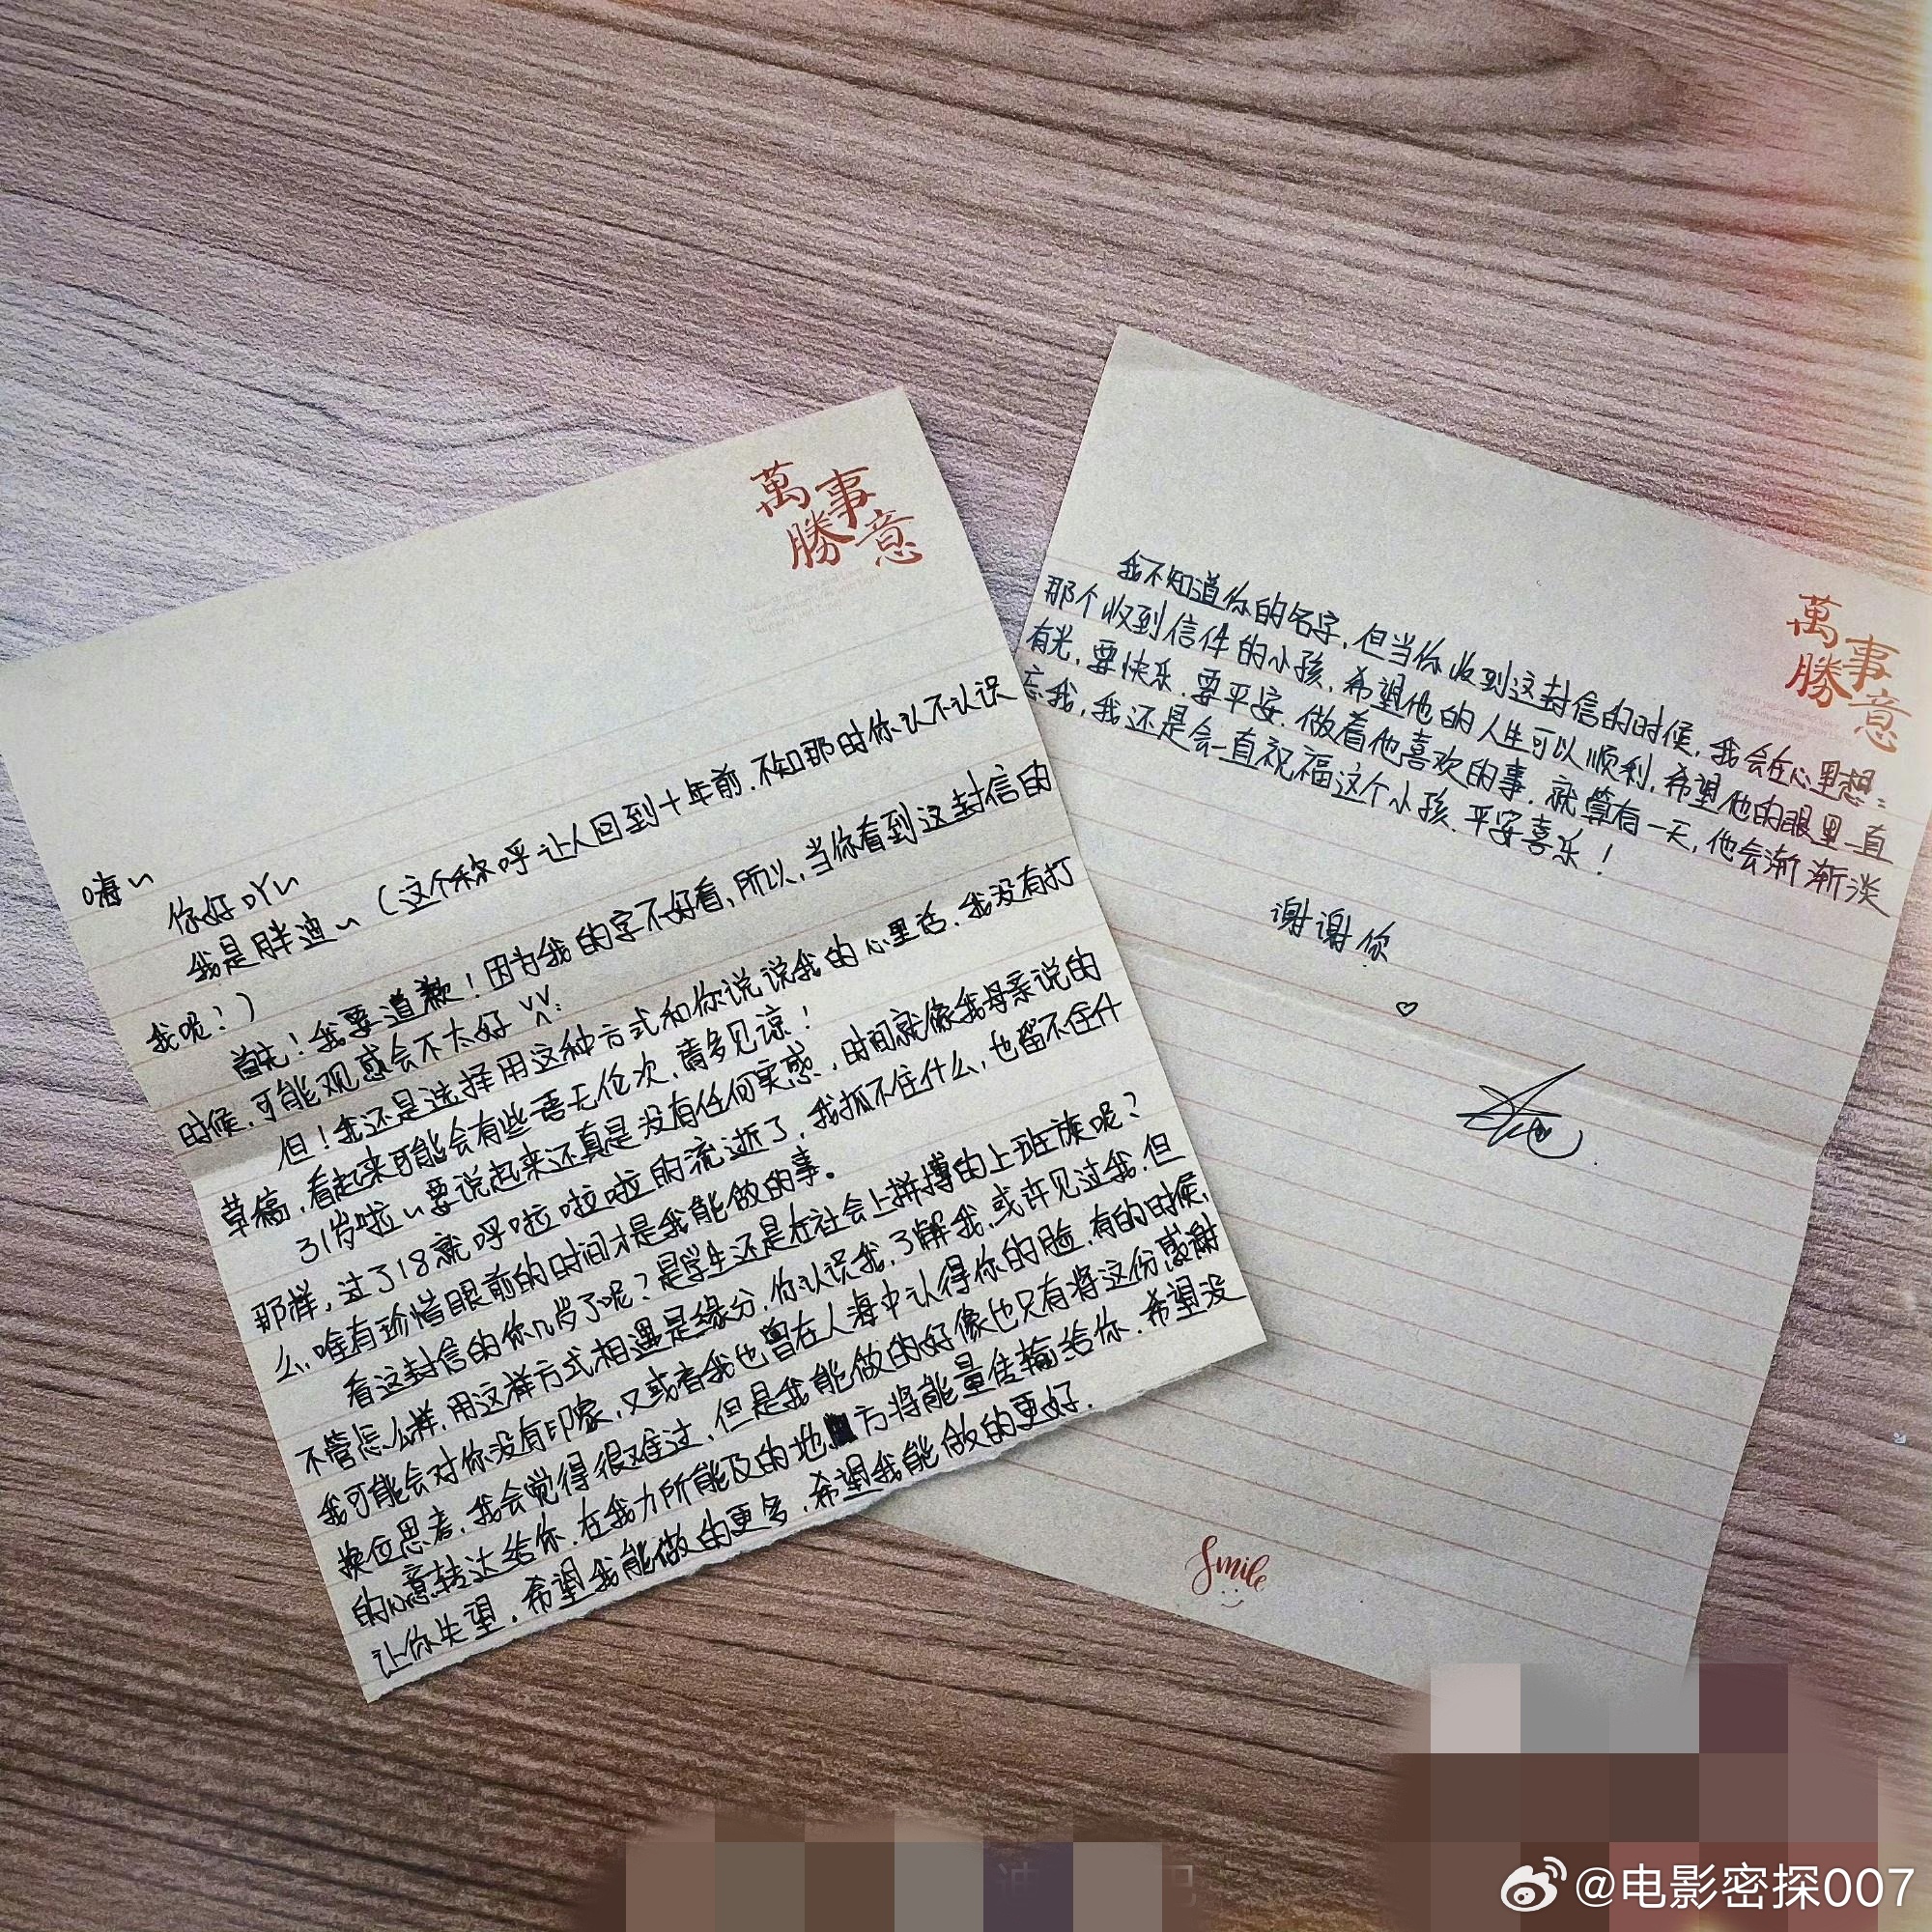 萬事
勝意
嗨~
你好吖~
我是胖迪~（这个称呼让人回到十年前.不知那时你认不认识
我呢?）
首先!我要道歉!因为我的字不好看,所以,当你看到这封信的
时候,可能观感会不太好
但!我还是选择用这种方式和你说说我的心里话.我没有打
草稿,看起来可能会有些语无伦次,请多见谅!
31岁啦~要说起来还真是没有任何实感,时间就像我母亲说的
那样,过了18就呼啦啦啦的流逝了,我抓不住什么,也留不住什
么,唯有珍惜眼前的时间才是我能做的事。
看这封信的你几岁了呢?是学生还是在社会上拼搏的上班族呢?
不管怎么样,用这样方式相遇是缘分.你认识我,了解我,或许见过我.但
我可能会对你没有印象,又或者我也曾在人海中认得你的脸,有的时候,
换位思考,我会觉得很难过,但是我能做的好像也只有将这份感谢
的心意转达给你.在我力所能及的地方将能量传输给你.希望没
让你失望.希望我能做的更多.希望我能做的更好.
萬事
勝意
我不知道你的名字,但当你收到这封信的时候,我会在心里想:
那个收到信件的小孩,希望他的人生可以顺利,希望他的眼里一直
有光,要快乐.要平安.做着他喜欢的事.就算有一天,他会渐渐淡
忘我,我还是会一直祝福这个小孩.平安喜乐!
谢谢你
♡
Smile
@电影密探007